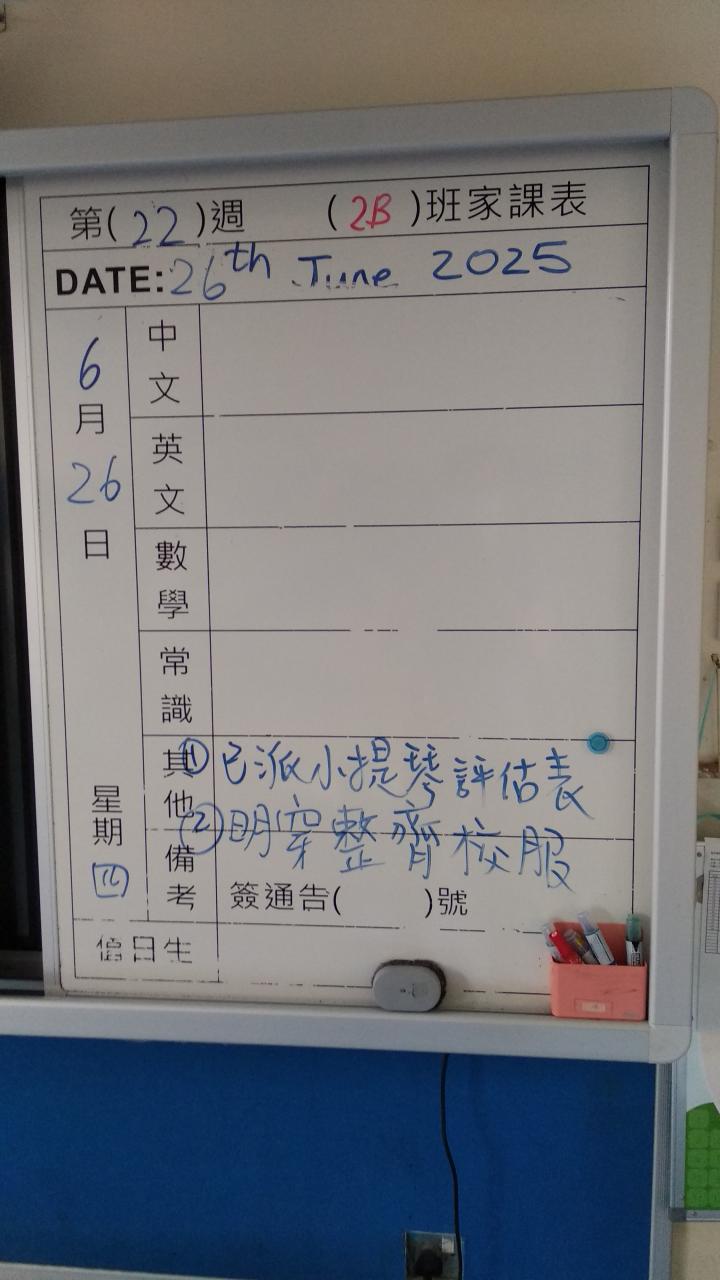 第(22)週 (2B)班家課表
DATE: 26th June 2025
6月26日
星期四
中文
英文
數學
常識
其他
① 已派小提琴評估表
② 明穿整齊校服
備考
簽通告( )號
值日生